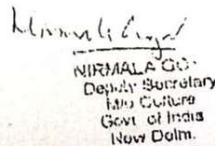 NIRMALA GO
Deputy Secretary
M/o Culture
Govt of India
New Delhi.